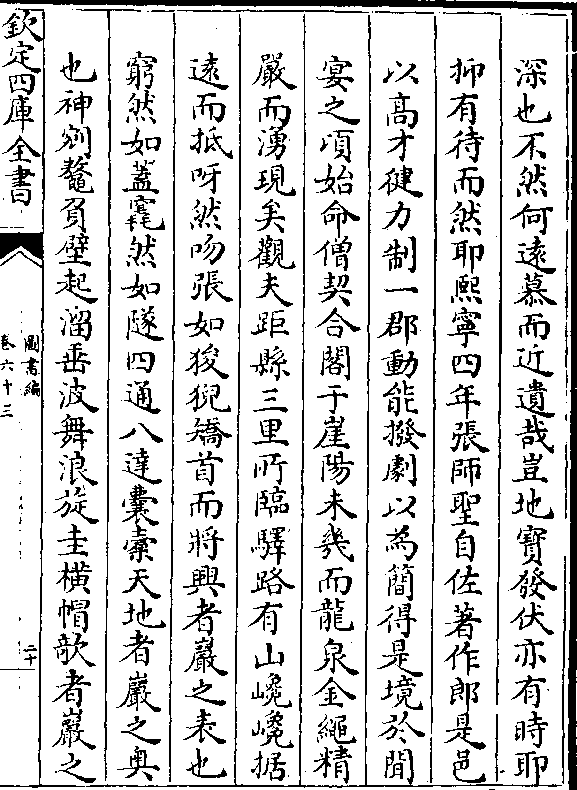 深也不然何遠慕而近遺哉豈地寶發伏亦有時耶
抑有待而然耶熙寧四年張師聖自佐著作郎是邑
以高才健力制一郡動能撥劇以為簡得是境於閒
宴之頃始命僧契合閣于崖陽未幾而龍泉金繩精
嚴而湧現矣觀夫距縣三里所臨驛路有山巉巉据
遠而抵呀然吻張如狻猊矯首而將興者巖之表也
窮然如蓋窪然如隧四通八達囊橐天地者巖之奥
也神剜鼇負壁起溜垂波舞浪旋圭橫帽欹者巖之
欽定四庫全書
圖書編
卷六十三
二十